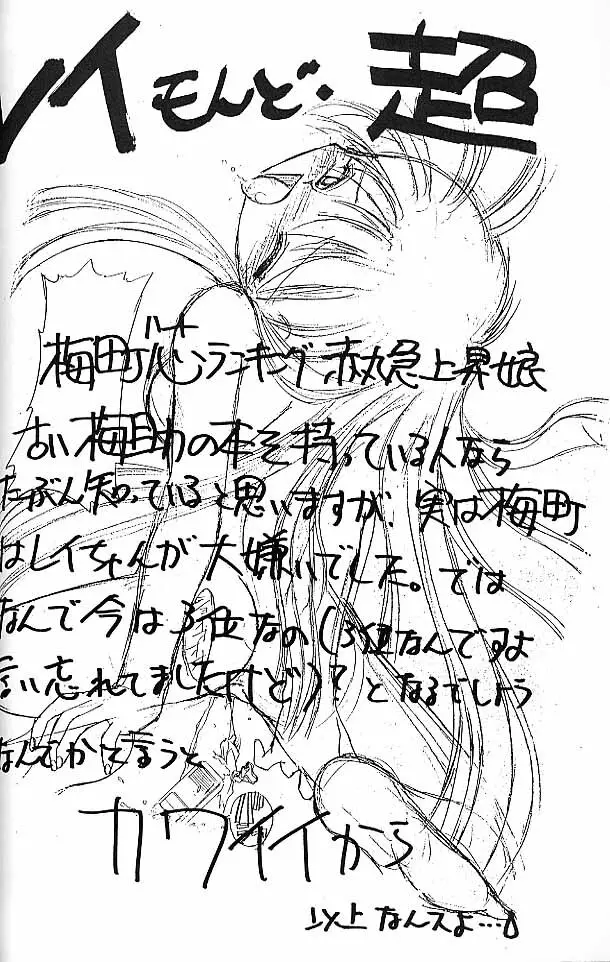 レイもんど・超
ハート
梅町心ランキング赤丸急上昇娘
古い梅町の本を持っている人なら
たぶん知っていると思いますが、実は梅町
はレイちゃんが大嫌いでした。では
なんで今は3位なの(3位なんですよ
言い忘れてましたけど)?となるでしょう
なんでかと言うと
カワイイから
以上なんスよ…